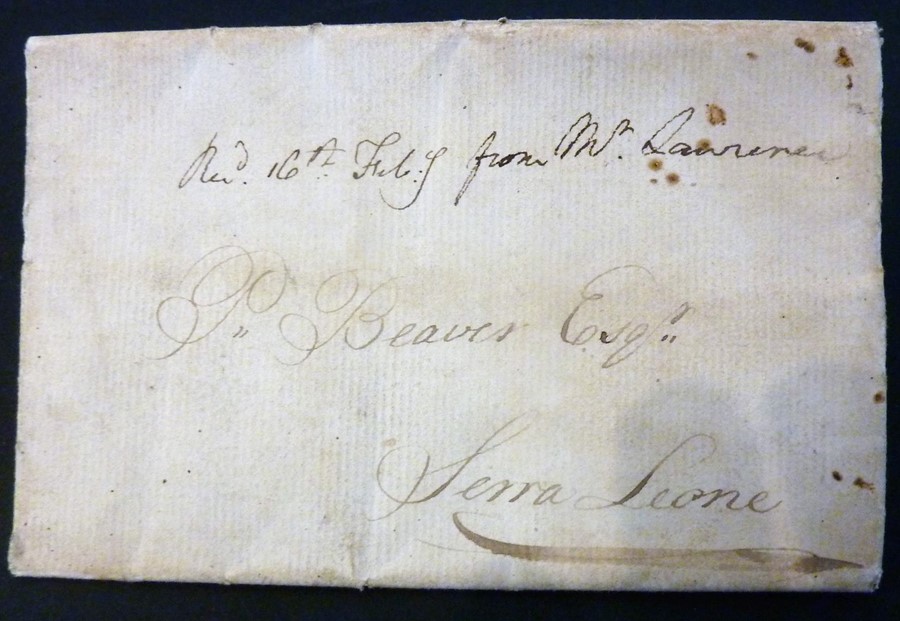 Rec.d 16th Feb.y from Mr. Lawrence
P,, Beaver Esqr,,
Serra Leone